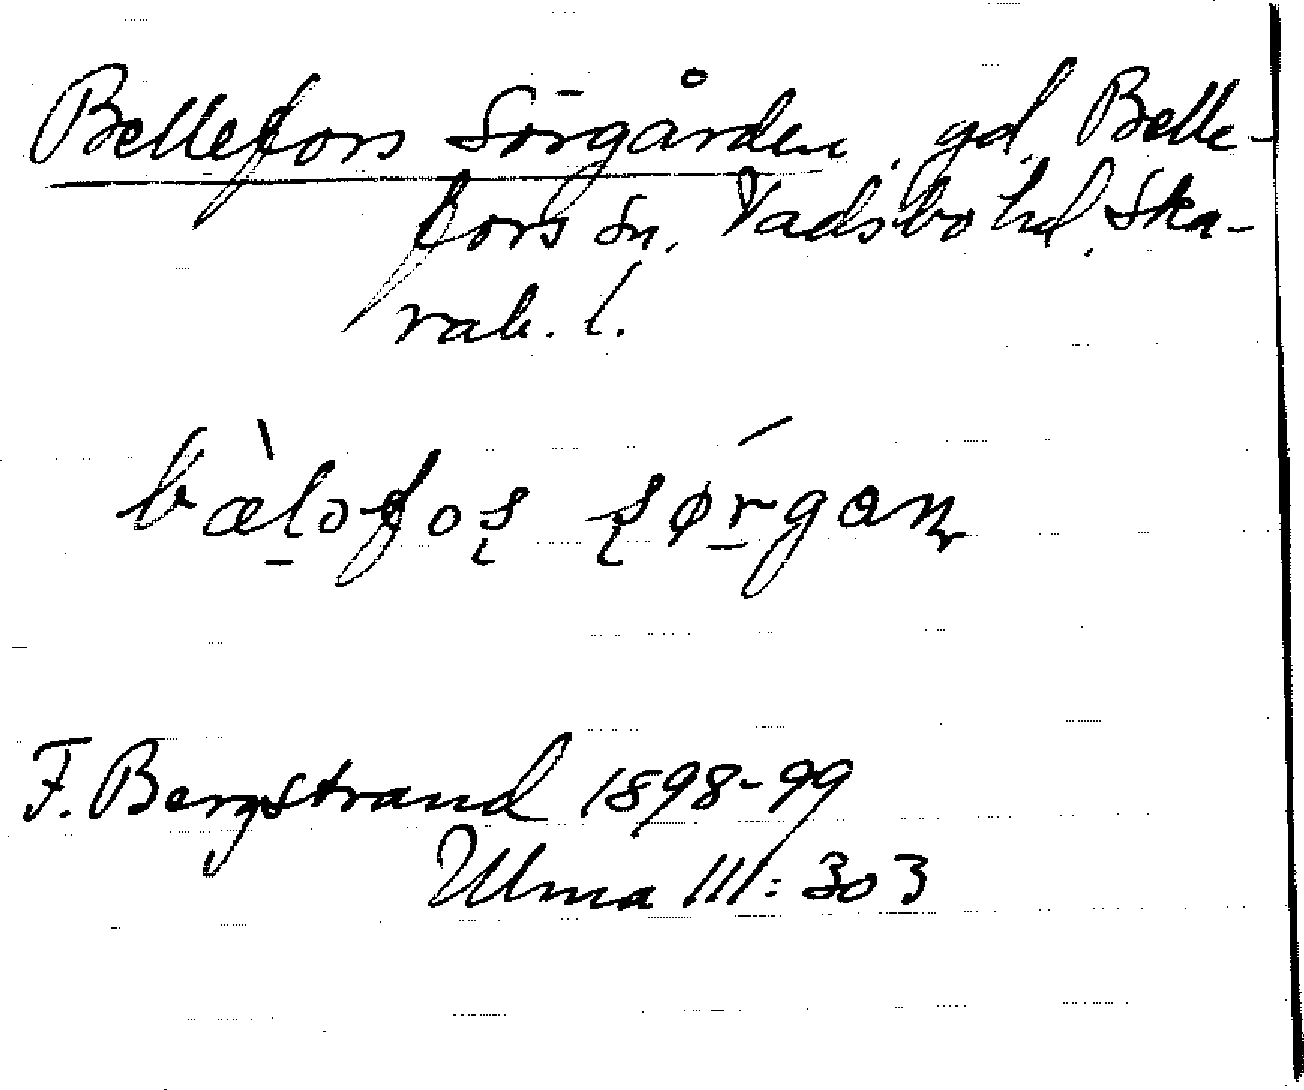 Bellefors Sörgården, gd, Belle-
fors sn, Vadsbo hd, Ska-
rab. l.
bæ̀l̠əfoʂ ʂøŕ̠gaɳ
F. Bergstrand 1898-99
Ulma 111:303